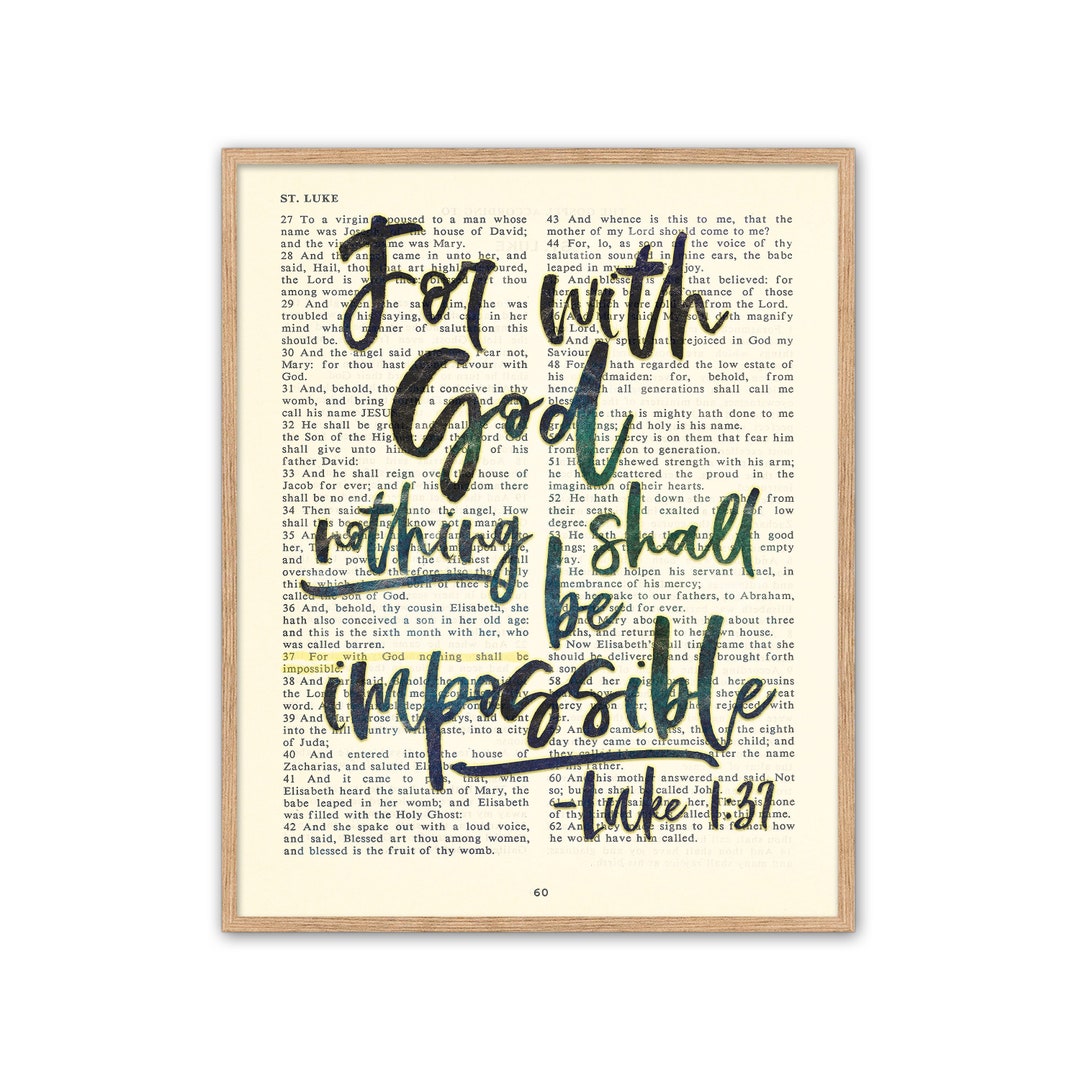 ST. LUKE
For with
God
nothing shall
be
impossible
-Luke 1:37
27 To a virgin espoused to a man whose
name was Joseph, the house of David;
and the virgin's name was Mary.
28 And the angel came in unto her, and
said, Hail, thou that art highly favoured,
the Lord is with thee: blessed thou
among women.
29 And when she saw him, she was
troubled at his saying, and cast in her
mind what manner of salutation this
should be.
30 And the angel said unto her, Fear not,
Mary: for thou hast found favour with
God.
31 And, behold, thou shalt conceive in thy
womb, and bring forth a son, and shalt
call his name JESUS.
32 He shall be great, and shall be called
the Son of the Highest: and the Lord God
shall give unto him the throne of his
father David:
33 And he shall reign over the house of
Jacob for ever; and of his kingdom there
shall be no end.
34 Then said Mary unto the angel, How
shall this be, seeing I know not a man?
35 And the angel answered and said unto
her, The Holy Ghost shall come upon thee,
and the power of the Highest shall
overshadow thee: therefore also that holy
thing which shall be born of thee shall be
called the Son of God.
36 And, behold, thy cousin Elisabeth, she
hath also conceived a son in her old age:
and this is the sixth month with her, who
was called barren.
37 For with God nothing shall be
impossible.
38 And Mary said, Behold the handmaid of
the Lord; be it unto me according to thy
word. And the angel departed from her.
39 And Mary arose in those days, and went
into the hill country with haste, into a city
of Juda;
40 And entered into the house of
Zacharias, and saluted Elisabeth.
41 And it came to pass, that, when
Elisabeth heard the salutation of Mary, the
babe leaped in her womb; and Elisabeth
was filled with the Holy Ghost:
42 And she spake out with a loud voice,
and said, Blessed art thou among women,
and blessed is the fruit of thy womb.
43 And whence is this to me, that the
mother of my Lord should come to me?
44 For, lo, as soon as the voice of thy
salutation sounded in mine ears, the babe
leaped in my womb for joy.
45 And blessed is she that believed: for
there shall be a performance of those
things which were told her from the Lord.
46 And Mary said, My soul doth magnify
the Lord,
47 And my spirit hath rejoiced in God my
Saviour.
48 For he hath regarded the low estate of
his handmaiden: for, behold, from
henceforth all generations shall call me
blessed.
49 For he that is mighty hath done to me
great things; and holy is his name.
50 And his mercy is on them that fear him
from generation to generation.
51 He hath shewed strength with his arm;
he hath scattered the proud in the
imagination of their hearts.
52 He hath put down the mighty from
their seats, and exalted them of low
degree.
53 He hath filled the hungry with good
things; and the rich he hath sent empty
away.
54 He hath holpen his servant Israel, in
remembrance of his mercy;
55 As he spake to our fathers, to Abraham,
and to his seed for ever.
56 And Mary abode with her about three
months, and returned to her own house.
57 Now Elisabeth's full time came that she
should be delivered; and she brought forth
a son.
58 And her neighbours and her cousins
heard how the Lord had shewed great
mercy upon her; and they rejoiced with
her.
59 And it came to pass, that on the eighth
day they came to circumcise the child; and
they called him Zacharias, after the name
of his father.
60 And his mother answered and said, Not
so; but he shall be called John.
61 And they said unto her, There is none
of thy kindred that is called by this name.
62 And they made signs to his father, how
he would have him called.
60